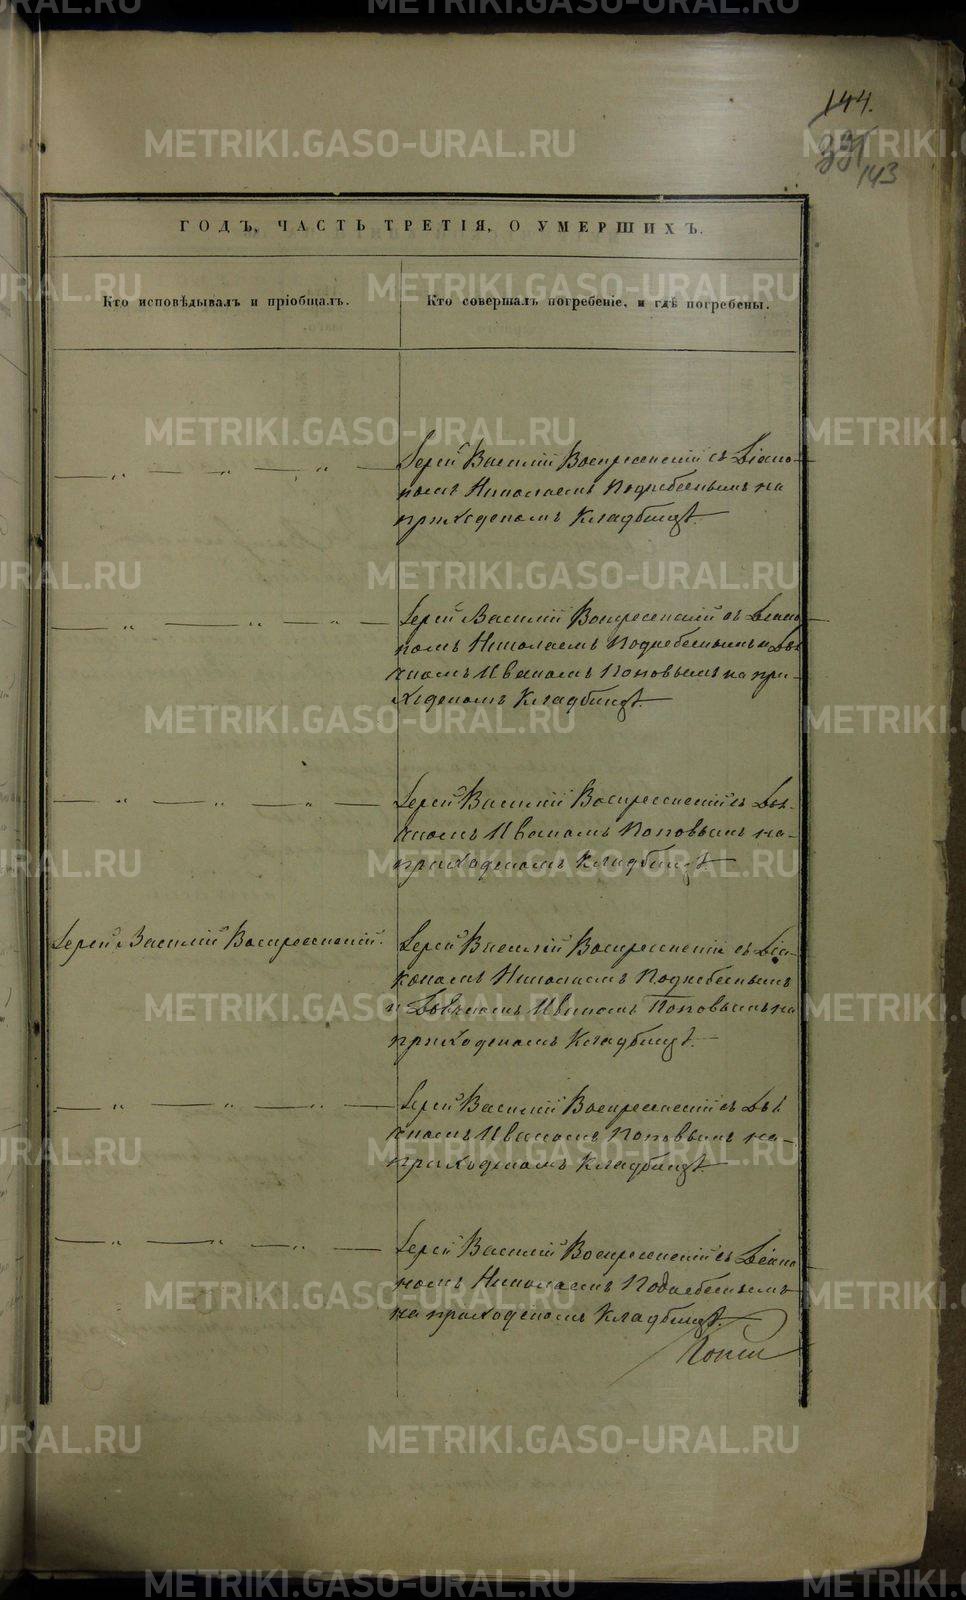 144.
337
143
ГОДЪ, ЧАСТЬ ТРЕТІЯ, О УМЕРШИХЪ.
Кто исповѣдывалъ и пріобщалъ.
Кто совершалъ погребеніе, и гдѣ погребены.
— „ — „ — „ —
Іерей Василій Воскресенскій съ Діако-
номъ Николаемъ Поднебеснымъ на
приходскомъ Кладбищѣ.
— „ — „ — „ —
Іерей Василій Воскресенскій съ Діако
номъ Николаемъ Поднебеснымъ и Дья
чкомъ Иваномъ Поповымъ на при-
ходскомъ Кладбищѣ.
— „ — „ — „ —
Іерей Василій Воскресенскій съ Дья-
чкомъ Иваномъ Поповымъ на-
приходскомъ Кладбищѣ.
Іерей Василій Воскресенскій.
Іерей Василій Воскресенскій съ Діа-
кономъ Николаемъ Поднебеснымъ
и Дьячкомъ Иваномъ Поповымъ на
приходскомъ Кладбищѣ.
— „ — „ — „ —
Іерей Василій Воскресенскій съ Дья
чкомъ Иваномъ Поповымъ на-
приходскомъ Кладбищѣ.
— „ — „ — „ —
Іерей Василій Воскресенскій съ Діако
номъ Николаемъ Поднебеснымъ
на приходскомъ Кладбищѣ.
METRIKI.GASO-URAL.RU